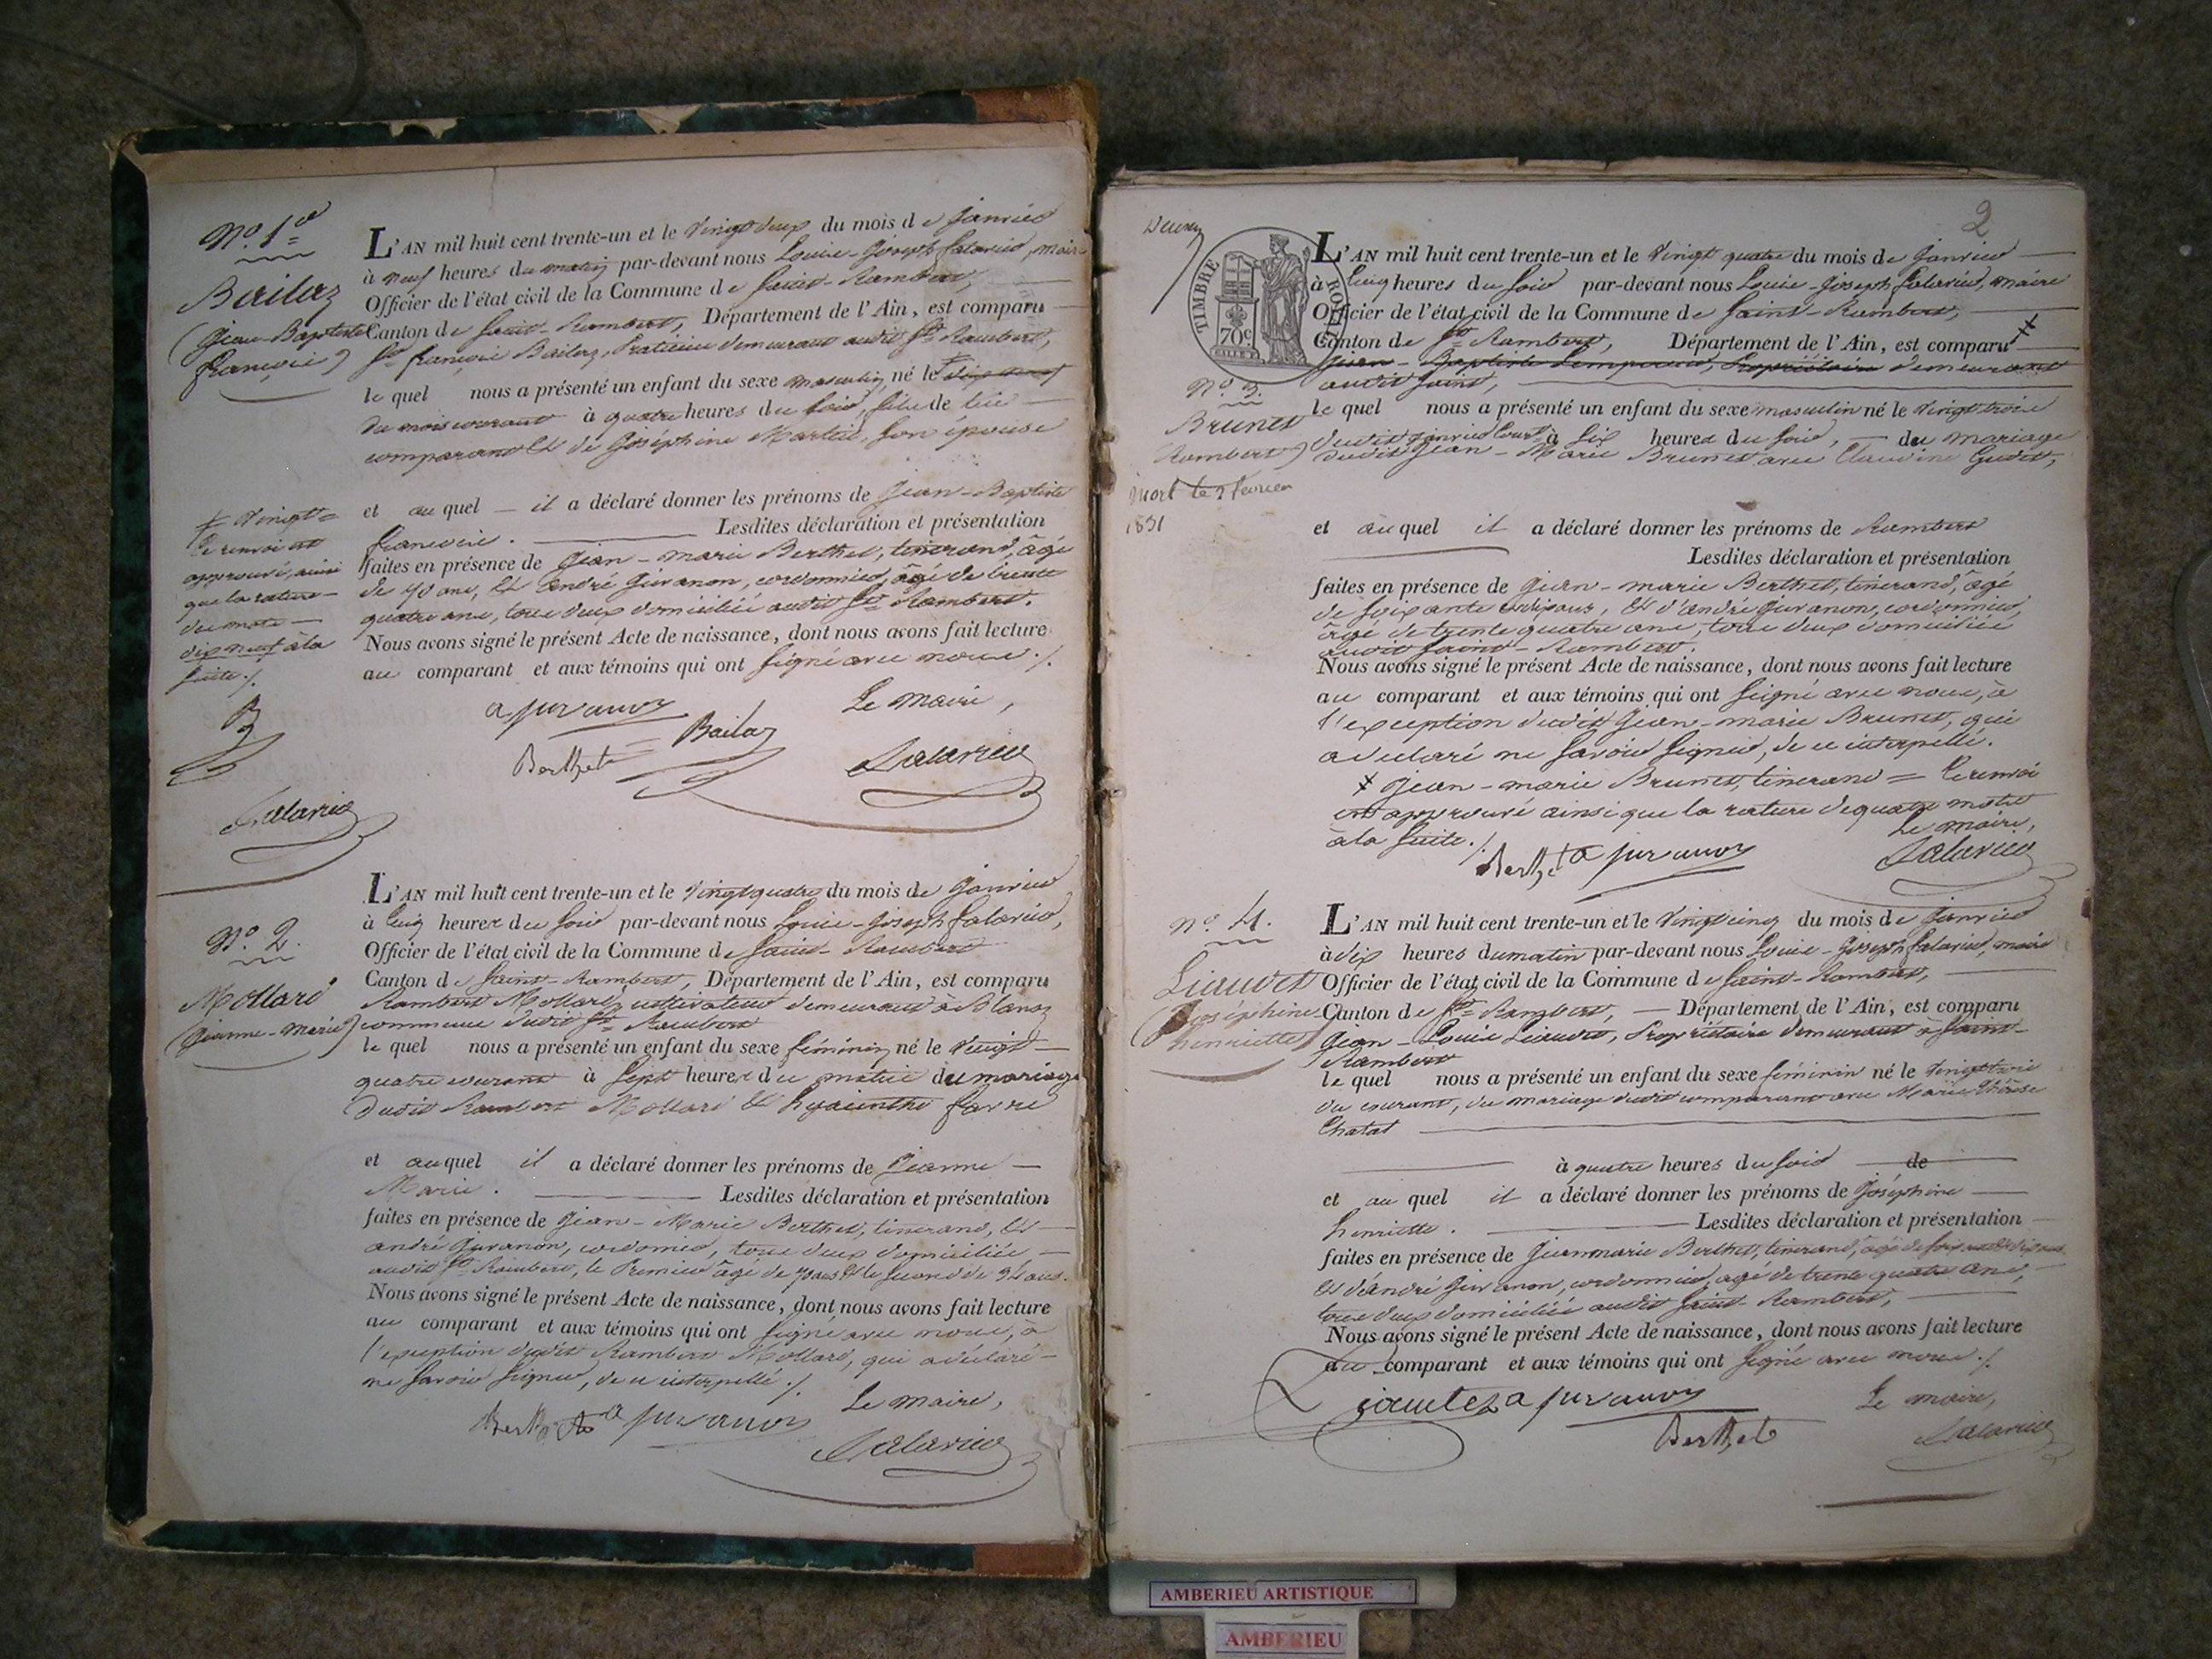 N.º 1.er
Bailaz
(Jean-Baptiste
françois)
L'AN mil huit cent trente-un et le vingt deux du mois de janvier
à neuf heures du matin par-devant nous Louis-Joseph Salavieu, maire
Officier de l'état civil de la Commune de Saint-Rambert,
Canton de Saint-Rambert, Département de l'Ain, est comparu
Sr françois Bailaz, Praticien demeurant audit St Rambert,
le quel nous a présenté un enfant du sexe masculin né le ŧ dix neuf
du mois courant à quatre heures du soir, fils de lui
comparant et de Joséphine Martin, son épouse
et au quel il a déclaré donner les prénoms de Jean-Baptiste
françois. Lesdites déclaration et présentation
faites en présence de Jean-marie Berthet, tisserand, âgé
de 70 ans, et andré Juvanon, cordonnier, âgé de trente
quatre ans, tous deux domiciliés audit St Rambert.
Nous avons signé le présent Acte de naissance, dont nous avons fait lecture
au comparant et aux témoins qui ont signé avec nous ./.
ŧ vingt =
le renvoi est
approuvé, ainsi
que la rature
des mots
dix neuf à la
suite ./.
B
Salavieu
a juvanon
Le maire,
Bailaz
Berthet
Salavieu
N.º 2.
Mollard
(Jeanne-Marie)
L'AN mil huit cent trente-un et le vingt quatre du mois de Janvier
à cinq heures du soir par-devant nous Louis-Joseph Salavieu,
Officier de l'état civil de la Commune de Saint-Rambert
Canton de Saint-Rambert, Département de l'Ain, est comparu
Rambert Mollard, cultivateur demeurant à Blanaz
commune dudit St Rambert
le quel nous a présenté un enfant du sexe féminin né le vingt
quatre courant à sept heures du matin du mariage
dudit Rambert Mollard et hyacinthe favre
et au quel il a déclaré donner les prénoms de Jeanne
Marie. Lesdites déclaration et présentation
faites en présence de Jean-Marie Berthet, tisserand, et
andré Juvanon, cordonnier, tous deux domiciliés
audit St Rambert, le Premier âgé de 70 ans et le second de 34 ans.
Nous avons signé le présent Acte de naissance, dont nous avons fait lecture
au comparant et aux témoins qui ont signé avec nous, à
l'exception dudit Rambert Mollard, qui a déclaré
ne savoir signer, de ce interpellé ./.
Le maire,
Berthet a juvanon
Salavieu
2
TIMBRE ROYAL
70c.
L'AN mil huit cent trente-un et le vingt quatre du mois de janvier
à cinq heures du soir par-devant nous Louis-Joseph Salavieu, maire
Officier de l'état civil de la Commune de Saint-Rambert,
Canton de St Rambert, Département de l'Ain, est comparu ŧ
Jean-Baptiste Lempereur, Propriétaire demeurant
audit Saint,
N.º 3.
Brunet
Rambert)
mort le 2 février
1831
le quel nous a présenté un enfant du sexe masculin né le vingt trois
dudit janvier Court à six heures du soir, du mariage
dudit Jean-Marie Brunet avec Claudine Gudet,
et au quel il a déclaré donner les prénoms de Rambert
Lesdites déclaration et présentation
faites en présence de Jean-marie Berthet, tisserand, âgé
de soixante et dix ans, et d'andré Juvanon, cordonnier,
âgé de trente quatre ans, tous deux domiciliés
audit Saint-Rambert.
Nous avons signé le présent Acte de naissance, dont nous avons fait lecture
au comparant et aux témoins qui ont signé avec nous, à
l'exception dudit Jean-marie Brunet, qui
a déclaré ne savoir signer, de ce interpellé.
ŧ Jean-marie Brunet, tisserand = le renvoi
est approuvé ainsi que la rature de quatre mots
à la suite ./.
Le maire,
Berthet a juvanon
Salavieu
N.º 4.
Liaudet
(Joséphine
henriette)
L'AN mil huit cent trente-un et le vingt cinq du mois de janvier
à dix heures du matin par-devant nous Louis-Joseph Salavieu, maire
Officier de l'état civil de la Commune de Saint-Rambert,
Canton de St Rambert, Département de l'Ain, est comparu
Jean-Louis Liaudet, Propriétaire demeurant à Saint-
Rambert
le quel nous a présenté un enfant du sexe féminin né le vingt trois
du courant, du mariage dudit comparant avec Marie Thérèse
Chatat
à quatre heures du soir de
et au quel il a déclaré donner les prénoms de Joséphine
henriette. Lesdites déclaration et présentation
faites en présence de Jean marie Berthet, tisserand, âgé de soixante et dix ans
et d'andré Juvanon, cordonnier, âgé de trente quatre ans,
tous deux domiciliés audit Saint-Rambert,
Nous avons signé le présent Acte de naissance, dont nous avons fait lecture
au comparant et aux témoins qui ont signé avec nous ./.
a juvanon
Le maire,
Berthet
Salavieu
AMBERIEU ARTISTIQUE
AMBERIEU